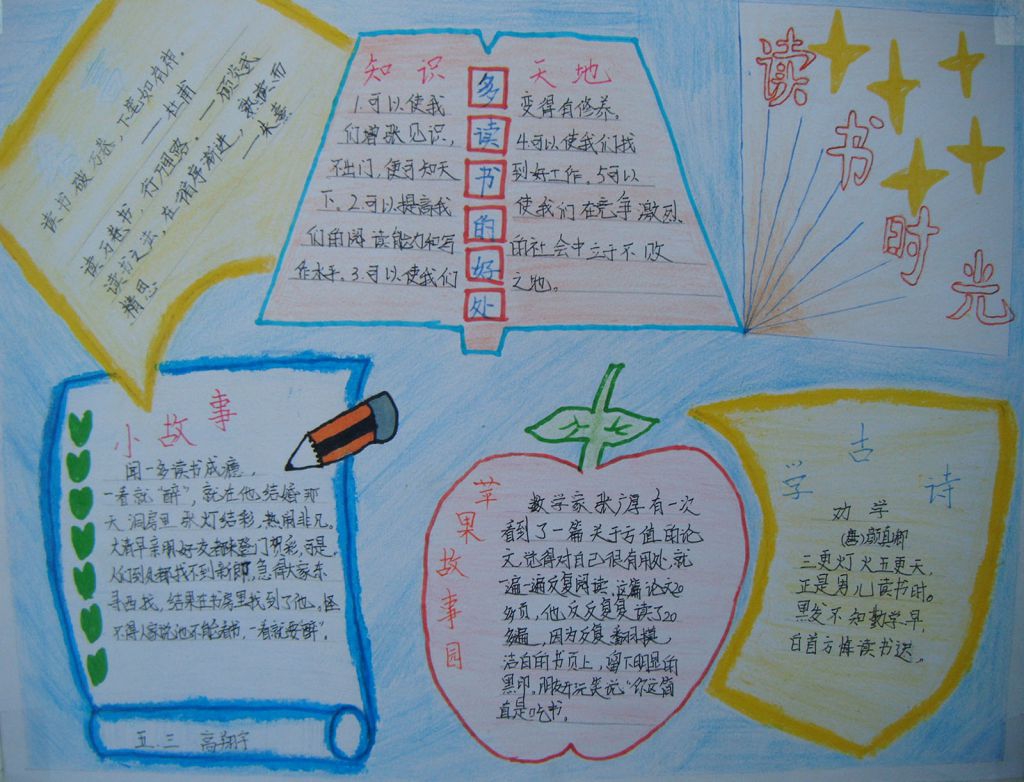 读书破万卷，下笔如有神。
——杜甫
读万卷书，行万里路。——顾炎武
读书之法，在循序渐进，熟读而
精思
——朱熹
知识天地
多读书的好处
1.可以使我
们增张见识，
不出门，便可知天
下。2.可以提高我
们的阅读能力和写
作水平。3.可以使我们
变得有修养。
4.可以使我们找
到好工作。5可以
使我们在竞争激烈
的社会中立于不败
之地。
读书时光
小故事
闻一多读书成瘾，
一看就“醉”，就在他结婚那
天，洞房里张灯结彩，热闹非凡。
大清早亲朋好友都来登门祝彩，可是
人们到处都找不到新郎，急得大家东
寻西找，结果在书房里找到了他。怪
不得人家说他不能看书，一看就要醉”。
五.三 高翔宇
苹果故事园
数学家张广厚有一次
看到了一篇关于方值的论
文，觉得对自己很有用处，就
一遍一遍反复阅读。这篇论文20
多页，他反反复复读了20
多遍，因为反复翻摸，
洁白的书页上，留下明显的
黑印。朋友开玩笑说“你这简
直是吃书。
学古诗
劝学
(唐)颜真卿
三更灯火五更天，
正是男儿读书时。
黑发不知勤学早，
白首方悔读书迟。